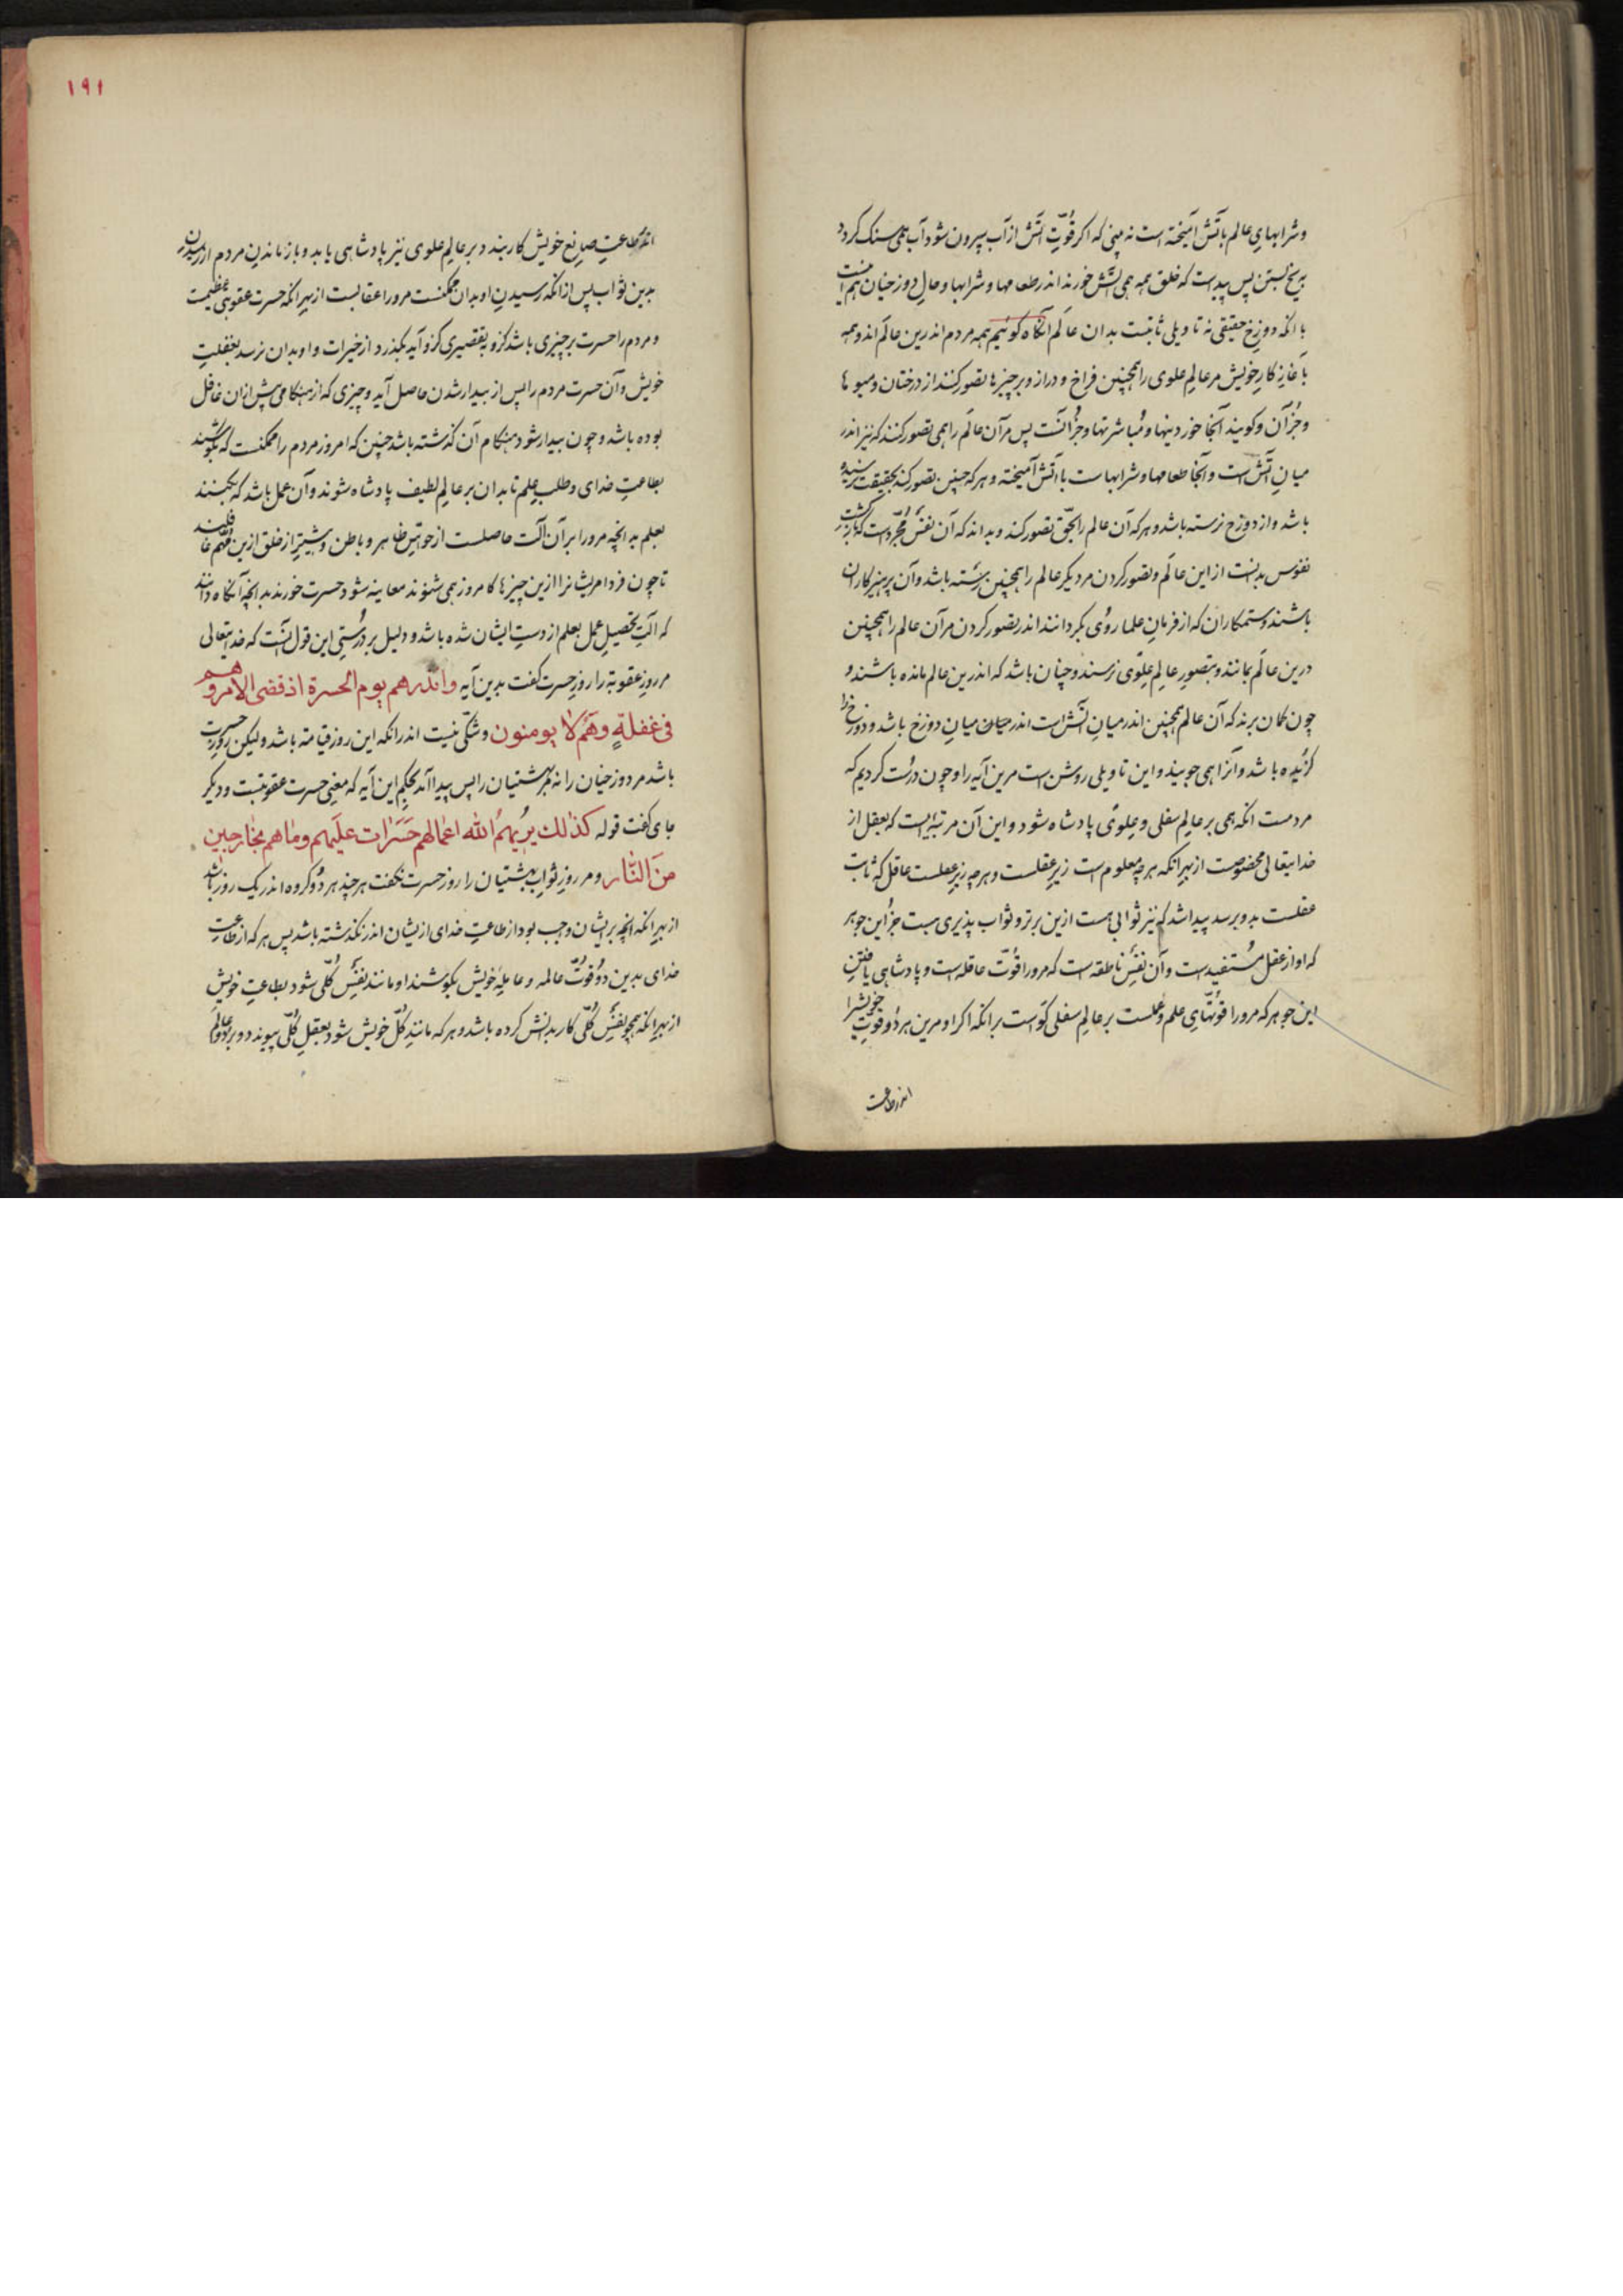 وشرابهای عالم باتش آمیخته است نه بینی که اکر قوّتِ آتش از آب بیرون شود آب همی سنک کردد
بریخ بستن پس پیداست که خلق همه همی آتش خورند اندر طعامها و شرابها و حالِ دوزخیان هم اینست
با انکه دوزخِ حقیقی نه تاویلی ثابتست بدان عالم آنکاه کوئیم همه مردم اندرین عالم اند و همه
باغازِ کارِ خویش مر عالمِ علوی را همچنین فراخ و دراز و بر چیزها تصور کنند از درختان و میوها
وجُز آن وکویند آنجا خوردنیها و مُباشرتها وجزُ آنست پس مرآن عالم را همی تصور کنند که نیز اندر
میانِ آتش است وآنجا طعامها وشرابهاست با آتش آمیخته و هرکه چنین تصور کند بحقیقت نرسیده
باشد واز دوزخ نرسته باشد وهرکه آن عالم را بحقّ تصور کند وبداند که آن نفسِ مُجرّدست که بازکشتِ
نفوس بدنست از این عالم وتصور کردن مر دیکر عالم را همچنین برسته باشد وآن پرهیزکاران
باشند وستمکاران که از فرمانِ علما روُی بکردانند اندر تصور کردن مر آن عالم را همچنین
درین عالم بمانند وبتصورِ عالمِ عِلوی نرسند وچنان باشد که اندرین عالم مانده باشند و
چون کمان برند که آن عالم همچنین اندر میانِ آتش است اندر میان میانِ دوزخ باشد و دوزخ را
کزیده باشد وآنرا همی جویند و این تاویلی روشن است مرین آیه را و چون درُست کردیم که
مردمست انکه همی بر عالمِ سفلی و عِلوی پادشاه شود و این آن مرتبه ایست که بعقل از
خدایتعالی مخصوصست از بهرِ انکه هرچه معلوم است زیرِ عقلست وهرچه زیرِ عقلست عاقل که ثابت
عقلست بدو برسد پیدا شد که نیز ثوابی هست ازین برتر و ثواب پذیری هست جزُ این جوهر
که او از عقل مُستفیدست وآن نفسِ ناطقه است که مرورا قوّتِ عاقله است و پادشاهی یافتنِ
این جوهر که مرورا قوتّهایِ علم وعملست بر عالمِ سفلی کواست برانکه اکر او مرین هر دوُ قوتِ خویش را
اندر طاعت
١٩١
اندر طاعتِ صانعِ خویش کار بندد بر عالمِ علوی نیز پادشاهی یابد و بازماندنِ مردم از رسیدن
بدین ثواب پس ازانکه رسیدنِ او بدان ممکنست مرورا عقابست از بهرِ انکه حسرت عقوبتی عظیمست
ومردم را حسرت بر چیزی باشد کزو بتقصیری کزو آید بکذرد از خیرات و او بدان نرسد بغفلتِ
خویش وآن حسرت مردم را پس از بیدار شدن حاصل آید و چیزی که از هنکامی پیش ازان غافل
بوده باشد وچون بیدار شود هنکامِ آن کذشته باشد چنین که امروز مردم را ممکنست که بکوشند
بطاعتِ خدای وطلبِ علم تا بدان بر عالمِ لطیف پادشاه شوند وآن عمل باشد که بکنند
بعلم بدانچه مرورا بر آن آلت حاصلست از حواسّ ظاهر و باطن و بیشتر از خلق ازین مهمّ غافلند
تا چون فردا مریشانرا ازین چیزها که امروز همی شنوند معاینه شود حسرت خورند بدانچه آنکاه دانند
که آلتِ تحصیلِ عمل بعلم از دستِ ایشان شده باشد و دلیل بر دُرستیِ این قول آنست که خدایتعالی
مر روزِ عقوبة را روزِ حسرت کفت بدین آیه وانذرهم یوم الحسرة اذ قضی الامر وهم
فی غفلةٍ وهم لا یومنون وشکّی نیست اندرانکه این روزِ قیامة باشد ولیکن روزِ حسرت
باشد مر دوزخیان را نه مر بهشتیان را پس پیدا آمد بحکمِ این آیه که معنیِ حسرت عقوبتست و دیکر
جای کفت قوله کذالك یریهمُ الله اعمالهم حَسَرات علیهم وماهم بخارجین
مِنَ النّار ومر روزِ ثوابِ بهشتیان را روزِ حسرت نکفت هرچند هر دوُ کروه اندر یک روز باشد
از بهرِ انکه انچه بریشان واجب بود از طاعتِ خدای ازیشان اندر نکذشته باشد پس هرکه از طاعتِ
خدای بدین دوُ قوّت عالمه و عامله خویش بکوشند او مانندِ نفسِ کُلّی شود بطاعتِ خویش
از بهرِ انکه همچو نفسِ کُلّی کار بدانش کرده باشد و هرکه مانندِ کلّ خویش شود بعقلِ کُلّی پیوندد و بر دو عالم